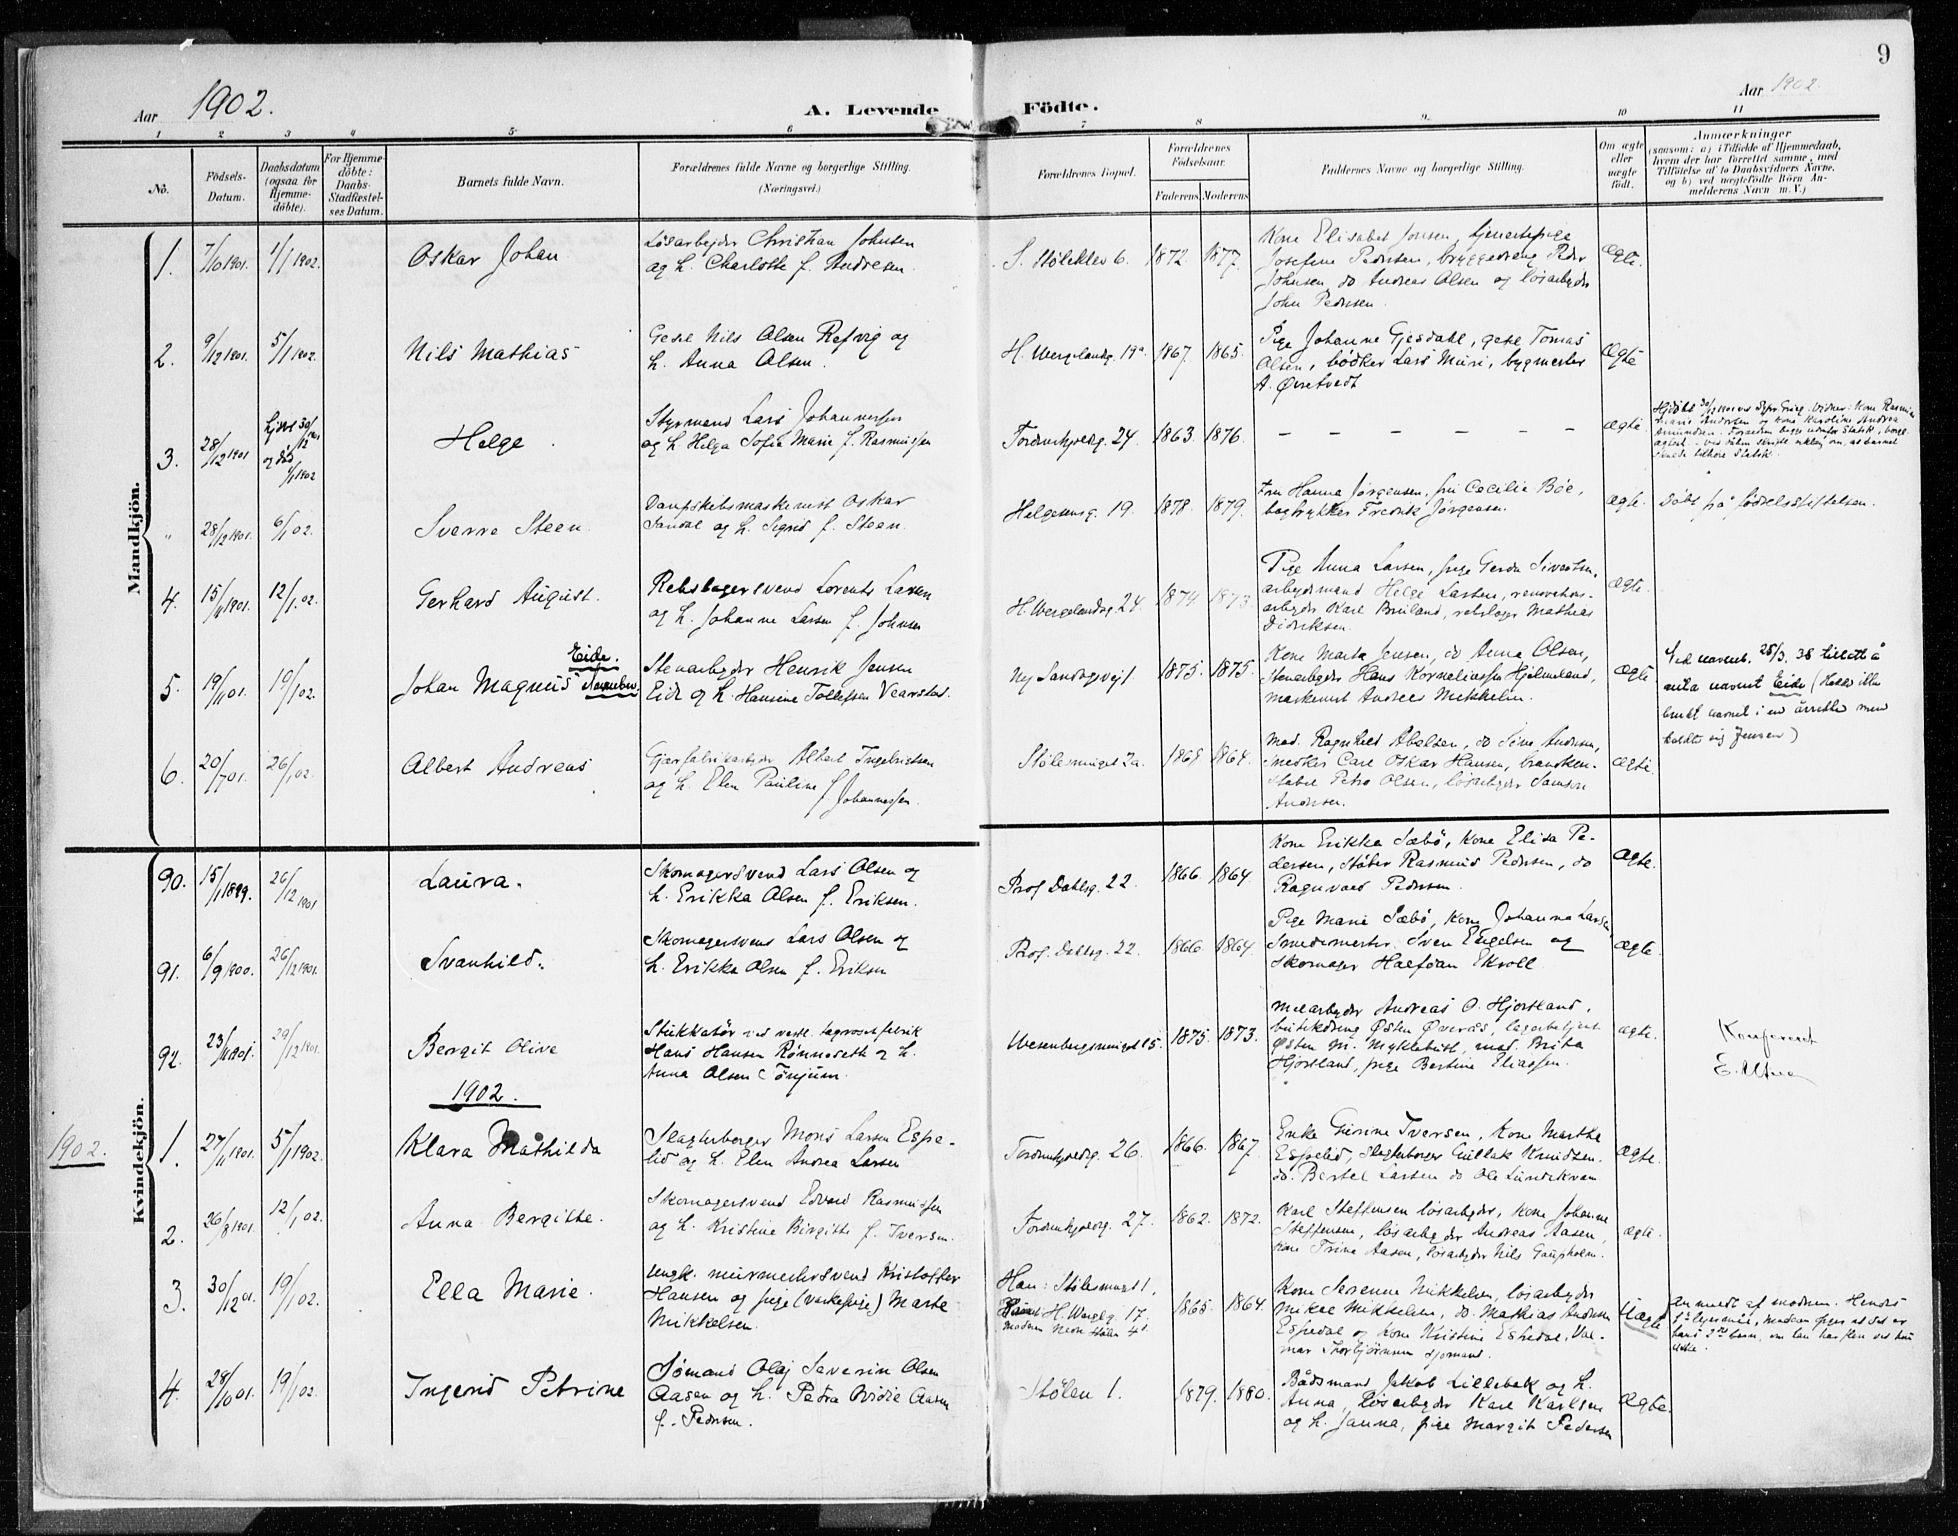 9
Aar 1902.
A. Levende Födte.
Aar 1902.
1 2 3 4 5 6 7 8 9 10 11
No.
Födsels-Datum.
Daabsdatum (ogsaa for Hjemme-döbte).
For Hjemme-döbte: Daabs-Stadfæstel-ses Datum.
Barnets fulde Navn.
Forældrenes fulde Navne og borgerlige Stilling. (Næringsvei.)
Forældrenes Bopæl.
Forældrenes Födselsaar.
Faderens Moderens
Faddernes Navne og borgerlige Stilling.
Om ægte eller uægte födt.
Anmærkninger
(saasom: a) i Tilfælde af Hjemmedaab,
hvem der har forrettet samme, med
Tilföielse af to Daabsvidners Navne,
og b) ved uægtefödte Börn An-
melderens Navn m. V.)
Mandkjön.
1. 7/10 1901. 1/1 1902. Oskar Johan
Løsarbejder Christian Johnsen
og h. Charlotte f. Andresen
S. Støleklev 6. 1872 1877.
Kone Elisabet Jonsen, tjenestepige
Josefine Pedersen, bryggedreng Peder
Johnsen, do Andreas Olsen og løsarbejder
John Pedersen.
Ægte.
2. 9/12 1901. 5/1 1902. Nils Mathias
Gesel Nils Olsen Refvig og
h. Anna Olsen.
H. Wergelandg. 19a. 1867. 1865.
Pige Johanne Gjesdahl, gesel Tomas
Olsen, bødker Lars Muri, bygmester
A. Øvretvedt
Ægte
3. 28/12 1901 hjdøbt 30/12 1901 og død 1/1 1902 Helge.
Styrmand Lars Johannessen
og h. Helga Sofie Marie f. Rasmussen
Tordenskjoldsg. 24. 1863. 1876.
— — — — — —
ægte
" 28/12 1901. 6/1 02. Sverre Steen.
Dampskibsmaskinist Oskar
Sandal og h. Sigrid f. Steen.
Helgesensg. 19. 1878. 1879.
Fru Hanna Jørgensen, frk Cecilie Bøe,
bogtrykker Fredrik Jørgensen.
ægte. Døbt på fødselsstiftelsen.
4. 15/11 1901. 12/1 02. Gerhard August.
Rebslagersvend Lorents Larsen
og h. Johanne Larsen f. Johnsen
H. Wergelandsg. 24. 1874 1873.
Pige Anna Larsen, pige Gerda Sivertsen,
arbejdsmand Helge Larsen, renovations-
arbejder Karl Bruland, rebslager Mathias
Didriksen.
ægte.
5. 19/11 01. 19/1 02. Johan Magnus Eide.
Stenarbejder Henrik Jensen
Eide og h. Hansine Tollefsen Vaarstad.
Ny Sandvigsvej 1 1875. 1875.
Kone Marta Jensen, do Anna Olsen,
stenarbejder Hans Kornelinssen Hjelmeland,
maskinist Andreas Mikkelsen.
Ægte
Ved navnet. 28/3. 38 tillatt å
anta navnet Eide (Hadde ikke
brukt navnet i en årrekke men
kaldt sig Jensen)
6. 20/7 01. 26/1 02. Albert Andreas
Gjærfabrikarbejder Albert Ingebrigtsen
og h. Elen Pauline f Johannessen.
Stølesmuget 2a. 1868 1864.
Mad. Ragnhild Abelsen, do Sine Andersen,
snedker Carl Oskar Hansen, brandkon-
stabel Petro Olsen, løsarbejder Samson
Andersen.
Ægte.
Kvindekjön.
90. 15/1 1899. 26/12 1901 Laura.
Skomagersvend Lars Olsen og
h. Erikka Olsen f. Eriksen.
Prof. Dahlsg. 22. 1866. 1864.
Kone Erikka Sæbö, Kone Elisa Pe-
dersen, støber Rasmus Pedersen, do
Ragnvald Pedersen.
Ægte.
91. 6/9 1900. 26/12 1901. Svanhild.
Skomagersvend Lars Olsen og
h. Erikka Olsen f. Eriksen
Prof. Dahlsg. 22. 1866. 1864.
Pige Marie Sæbö, Kone Johanna Larsen,
smedemester Sven Engelsen og
skomager Halfdan Ekroll.
Ægte.
92. 23/11 1901. 29/12 1901. Bergit Olive
Stukkatør ved vestl. tagroset fabrik
Hans Hansen Rönneseth og h.
Anna Olsen Tönjum.
Wesenbergsmuget 15. 1875. 1873.
Melarbejder Andreas O. Hjortland,
butikdreng Østen Øveraas, lagerbetjent
Østen M. Myklebust, mad. Brita
Hjortland, pige Bertine Eliassen.
ægte.
Konfereret
1902.
1902.
1. 27/11 1901. 5/1 1902. Klara Mathilda
Slagterborger Mons Larsen Espe-
lid og h. Elen Andrea Larsen
Tordenskjoldsg. 26. 1866. 1867.
Enke Gurine Iversen, Kone Marthe
Espelid, slagterborger Gullak Knudsen.
do. Bertel Larsen do Ole Lundekvam
Ægte.
2. 26/8 1901. 12/1 02. Anna Bergitte.
Skomagersvend Edvard Rasmussen
og h. Kristine Birgitte f. Iversen.
Tordenskjoldsg. 27. 1862. 1872.
Karl Steffensen løsarbejder, Kone Johanne
Steffensen, løsarbejder Andreas Aasen,
Kone Trina Aasen, løsarbejder Nils Gaupholm.
ægte.
3. 30/12 01. 19/1 02. Ella Marie.
Ungk. murmestersvend Kristoffer
Hansen og pige (vaskepige) Marte
Mikkelsen.
Han: Stølesmuget 1,
H. Wergelg. 17. 1865. 1864.
Kone Severine Mikkelsen, løsarbejder
Mikal Mikkelsen, do. Mathias Andersen
Espedal og Kone Kristine Espedal, Val-
mar Thorbjørnsen sjømand.
Uægte
Anmeldt af moderen. Hendes
4. 28/10 01. 19/1 02. Ingerid Petrine
Sømand Olaj Severin Olsen
Aasen og h. Petra Ovidie Aasen
f. Pedersen.
Stølen 1. 1879. 1880.
Bådsmand Jakob Lillebøk og h.
Anna, løsarbejder Karl Karlsen
og h. Janna, pige Margit Pedersen
Ægte.